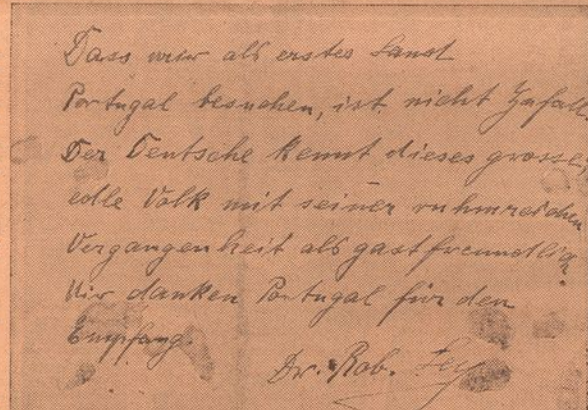 Dass wir als erstes Land
Portugal besuchen, ist nicht Zufall.
Der Deutsche kennt dieses grosse,
edle Volk mit seiner ruhmreichen
Vergangenheit als gastfreundlich.
Wir danken Portugal für den
Empfang.
Dr. Rob. Ley